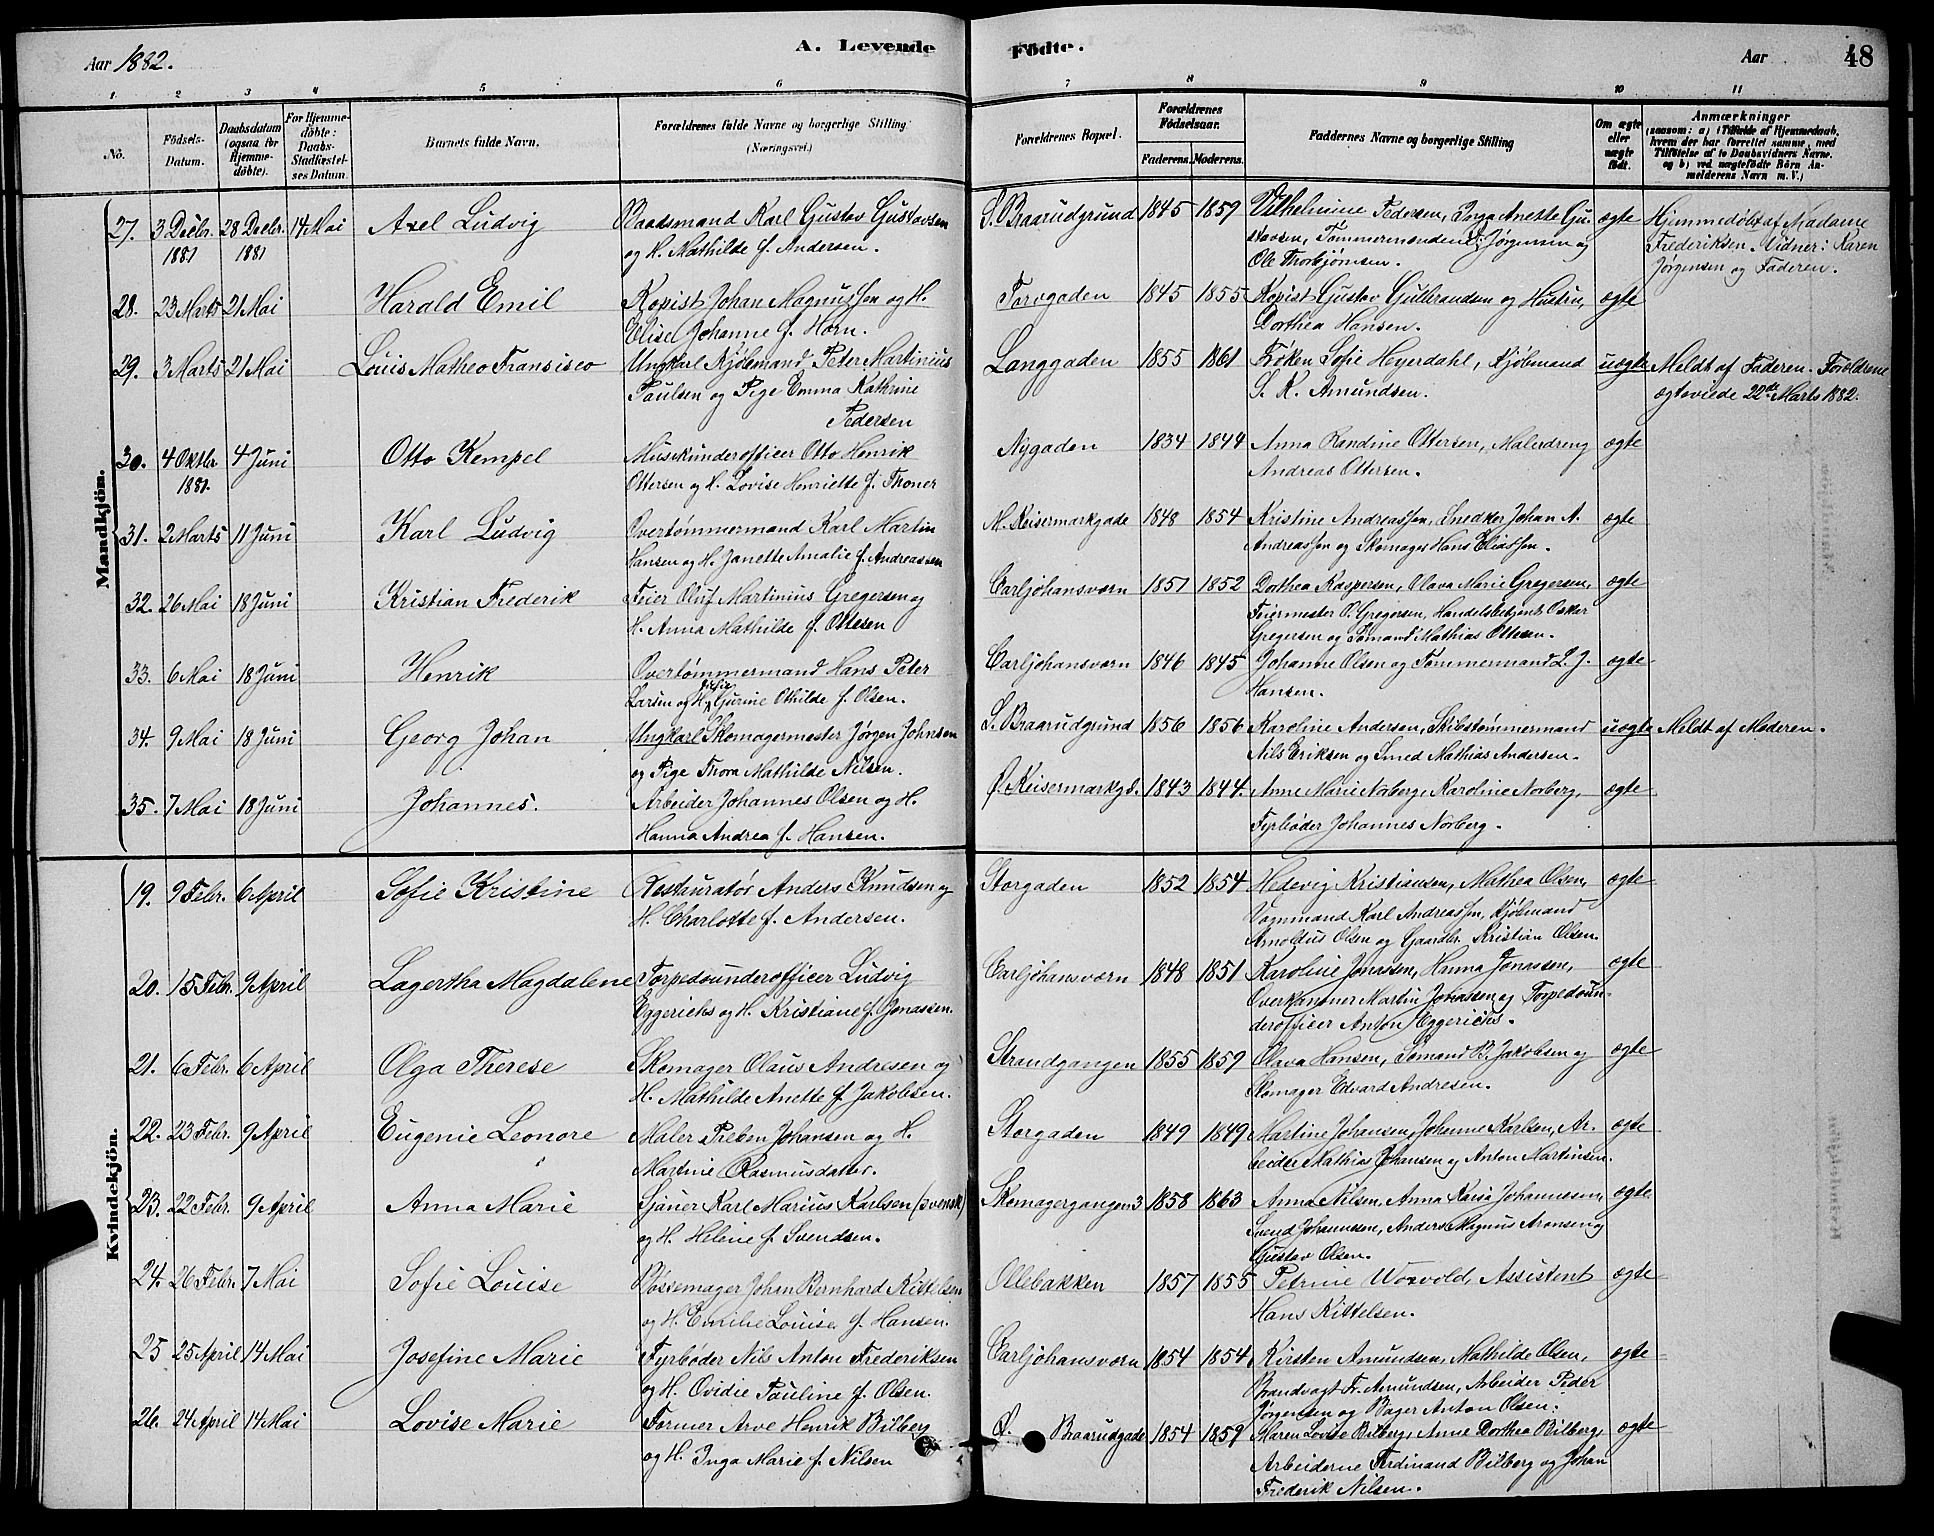 Aar 1882.
A. Levende
Födte.
Aar
48
1 2 3 4 5 6 7 8 9 10 11
No.
Födsels-Datum.
Daabsdatum (ogsaa for Hjemme-döbte).
For Hjemme-döbte: Daabs-Stadfæstel-ses Datum.
Barnets fulde Navn.
Forældrenes fulde Navne og borgerlige Stilling (Næringsvei.)
Forældrenes Bopæl.
Forældrenes Födselsaar.
Faderens. Moderens.
Faddernes Navne og borgerlige Stilling
Om ægte eller uægte födt.
Anmærkninger
(saasom: a) i Tilfælde af Hjemmedaab,
hvem der har forrettet samme, med
Tilföielse af to Daabsvidners Navne.
og b) ved uægtefödte Börn An-
melderens Navn m. V.)
Mandkjön.
27. 3 Decbr. 1881 28 Decbr. 1881 14 Mai Axel Ludvig Baadsmand Karl Gustav Gustavsen S. Baarudgrund 1845 1859 Vilhelmine Pedersen, Inga Anette Gu- ægte Hjemmedøbt af Madame
og H. Mathilde f. Andersen. stavsen, Tømmermændene Jørgensen og Frederiksen. Vidner: Karen
Ole Thorbjørnsen. Jørgensen og Faderen.
28. 23 Marts 21 Mai Harald Emil Kopist Johan Magnussen og H. Torvgaden 1845 1855 Kopist Gustav Gulbrandsen og Hustru, ægte
Elise Johanne f. Horn. Dorthea Hansen.
29. 3 Marts 21 Mai Louis Matheo Fransisco Ungkarl Kjøbmand Peter Martinius Langgaden 1855 1861 Frøken Sofie Heyerdahl, Kjøbmand uægte Meldt af Faderen. Forældrene
Paulsen og Pige Emma Kathrine S. K. Amundsen. ægteviede 22de Marts 1882.
Pedersen
30. 4 Oktbr. 1881. 4 Juni Otto Kempel Musikunderofficer Otto Henrik Nygaden 1834 1844 Anna Randine Ottersen, Malerdreng ægte
Ottersen og H. Lovise Henriette f. Thoner Andreas Ottersen.
31. 2 Marts 11 Juni Karl Ludvig Overtømmermand Karl Martin N. Keisermarkgade 1848 1854 Kristine Andreassen, Snedker Johan A. ægte
Hansen og H. Janette Amalie f. Andreassen Andreassen og Skomager Hans Eliassen.
32. 26 Mai 18 Juni Kristian Frederik Feier Oluf Martinius Gregersen og Carljohansværn 1851 1852 Dorthea Kaspersen, Olava Marie Gregersen, ægte
H. Anna Mathilde f. Ottesen Feiermester O. Gregersen, Handelsbetjent Oskar
Gregersen og Sømand Mathias Ottesen.
33. 6 Mai 18 Juni Henrik Overtømmermand Hans Peter Carljohansværn 1846 1845 Johanne Olsen og Tømmermand L. J. ægte
Larsen og H. Gurine Othilde f. Olsen. Hansen.
34. 9 Mai 18 Juni Georg Johan Ungkarl Skomagermester Jørgen Johnsen S. Baarudgrund 1856 1856 Karoline Andersen, Skibstømmermand uægte Meldt af Moderen.
og Pige Thora Mathilde Nilsen. Nils Eriksen og Smed Mathias Andersen.
35. 7 Mai 18 Juni Johannes. Arbeider Johannes Olsen og H. Ø. Keisermarkgd. 1843 1844. Anne Marie Norberg, Karoline Norberg, ægte
Hanna Andrea f. Hansen. Fyrbøder Johannes Norberg.
Kvindekjön.
19. 9 Febr. 6 April Sofie Kristine Restauratør Anders Knudsen og Storgaden 1852 1854 Hedevig Kristiansen, Mathea Olsen, ægte
H. Charlotte f. Andersen. Vognmand Karl Andreassen, Kjøbmand
Arnoldus Olsen og Gaardbr. Kristian Olsen.
20. 15 Febr. 9 April Lagertha Magdalene Torpedounderofficer Ludvig Carljohansværn 1848 1851 Karoline Jonassen, Hanna Jonassen, ægte
Eggerichs og H. Kristiane f. Jonassen. Overkanoner Martin Jonassen og Torpedoun-
derofficer Anton Eggerichs.
21. 6 Febr. 6 April Olga Therese Skomager Olaus Andresen og Strandgangen 1855 1859 Olava Hansen, Sømand B. Jakobsen og ægte
H. Mathilde Anette f. Jakobsen. Skomager Edvard Andresen.
22. 23 Febr. 9 April Eugenie Leonore Maler Preben Johansen og H. Storgaden 1849 1849 Martine Johansen, Johanne Karlsen, Ar- ægte
Martine Rasmusdatter. beider Mathias Johansen og Anton Martinsen.
23. 22 Febr. 9 April Anna Marie Sjauer Karl Marius Karlsen (svensk) Skomagergangen 3 1858 1863 Anna Nilsen, Anna Kaisa Johannesen, ægte
og H. Helene f. Svendsen. Svend Johannesen, Anders Magnus Aronsen og
Gustav Olsen.
24. 26 Febr. 7 Mai Sofie Louise Bøssemager Johan Bernhard Kittelsen Ollebakken 1857 1855 Petrine Worvold, Assistent ægte
og H. Emilie Louise f. Hansen. Hans Kittelsen.
25 25 April 14 Mai Josefine Marie Fyrbøder Nils Anton Frederiksen Carljohansværn 1854 1854 Kirsten Amundsen, Mathilde Olsen, ægte
og H. Ovidie Pauline f. Olsen. Brandvagt Fr. Amundsen, Arbeider Peder
Jørgensen og Bager Anton Olsen.
26. 24 April 14 Mai Lovise Marie Former Arve Henrik Bilberg Ø. Baarudgade 1854 1859 Maren Lovise Bilberg, Anne Dorthea Bilberg, ægte
og H. Inga Marie f. Nilsen Arbeiderne Ferdinand Bilberg og Johan
Frederik Nilsen.